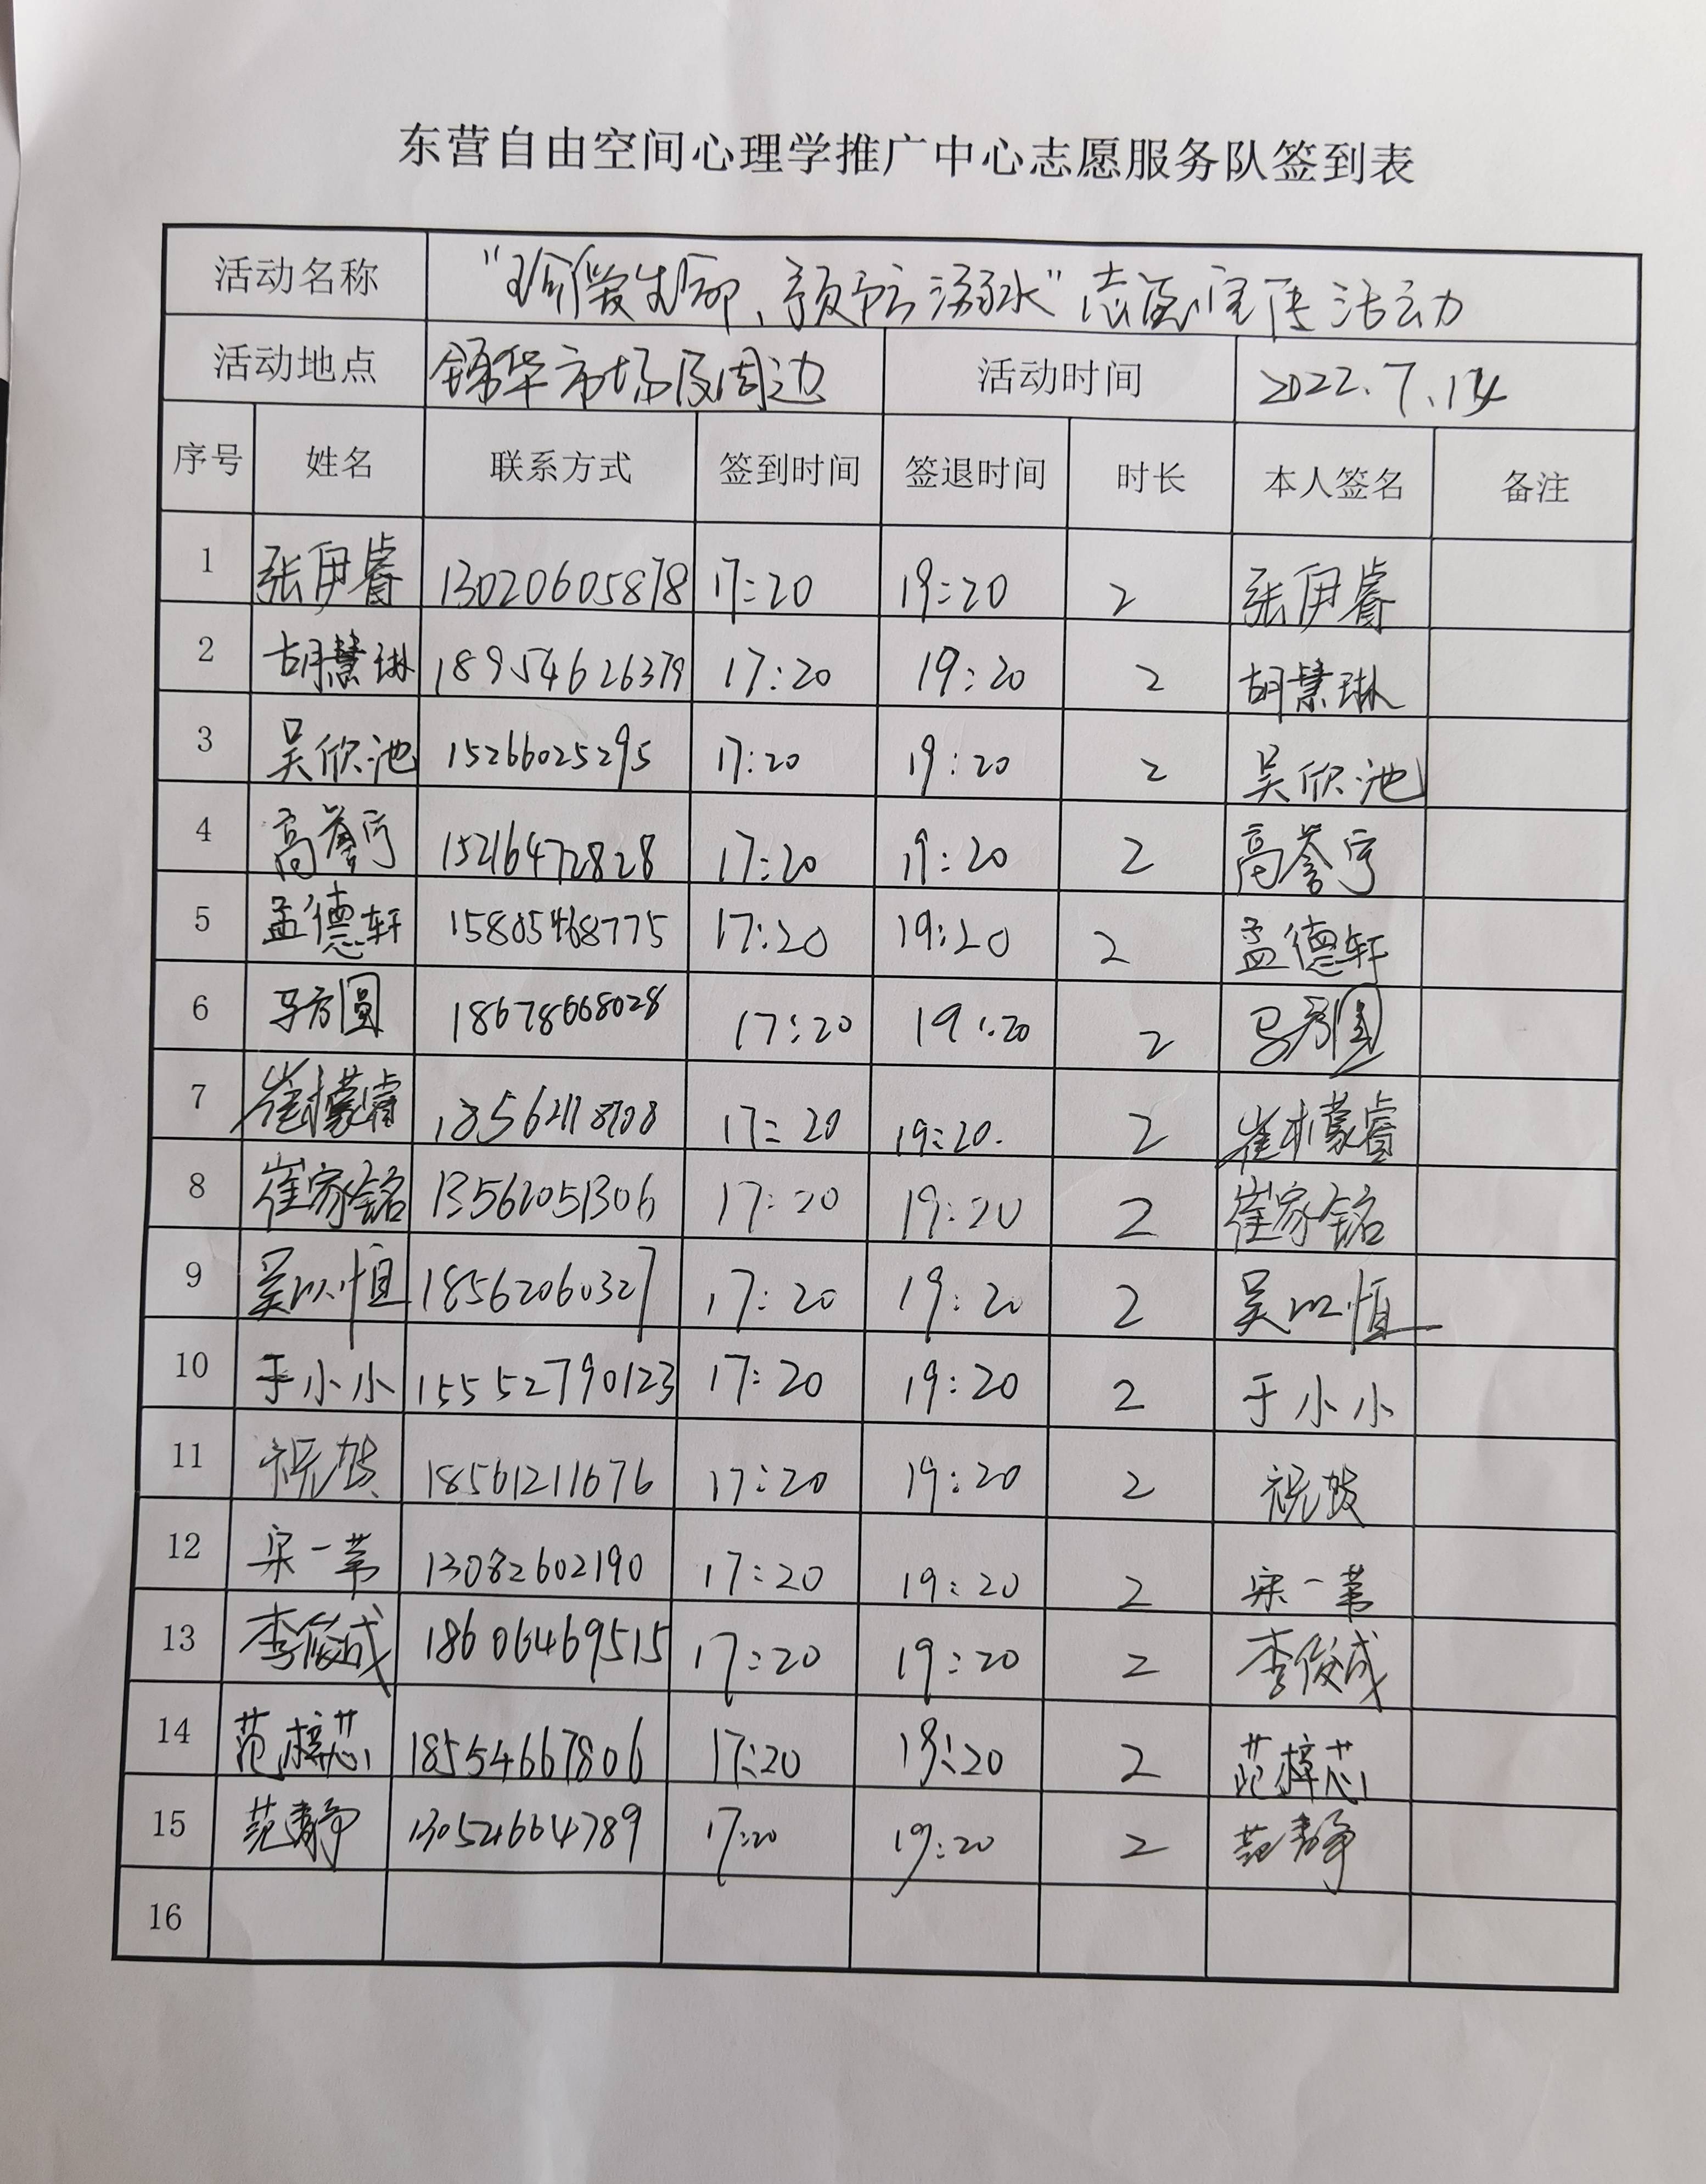 东营自由空间心理学推广中心志愿服务队签到表
活动名称 "珍爱生命、预防溺水"志愿宣传活动
活动地点 锦华市场及周边 活动时间 2022.7.14
序号 姓名 联系方式 签到时间 签退时间 时长 本人签名 备注
1 张伊睿 13020605878 17:20 19:20 2 张伊睿
2 胡慧琳 18954626379 17:20 19:20 2 胡慧琳
3 吴欣池 15266025295 17:20 19:20 2 吴欣池
4 高誉宁 15216472828 17:20 19:20 2 高誉宁
5 孟德轩 15805468775 17:20 19:20 2 孟德轩
6 马方圆 18678668028 17:20 19:20 2 马方圆
7 崔檬睿 17:20 19:20. 2 崔檬睿
8 崔家铭 13562051306 17:20 19:20 2 崔家铭
9 吴以恒 18562060327 17:20 19:20 2 吴以恒
10 于小小 15552790123 17:20 19:20 2 于小小
11 祝贺 18561211676 17:20 19:20 2 祝贺
12 宋一苇 13082602190 17:20 19:20 2 宋一苇
13 李俊成 18606469515 17:20 19:20 2 李俊成
14 范梓芯 18554667806 17:20 19:20 2 范梓芯
15 范静 17:20 19:20 2 范静
16